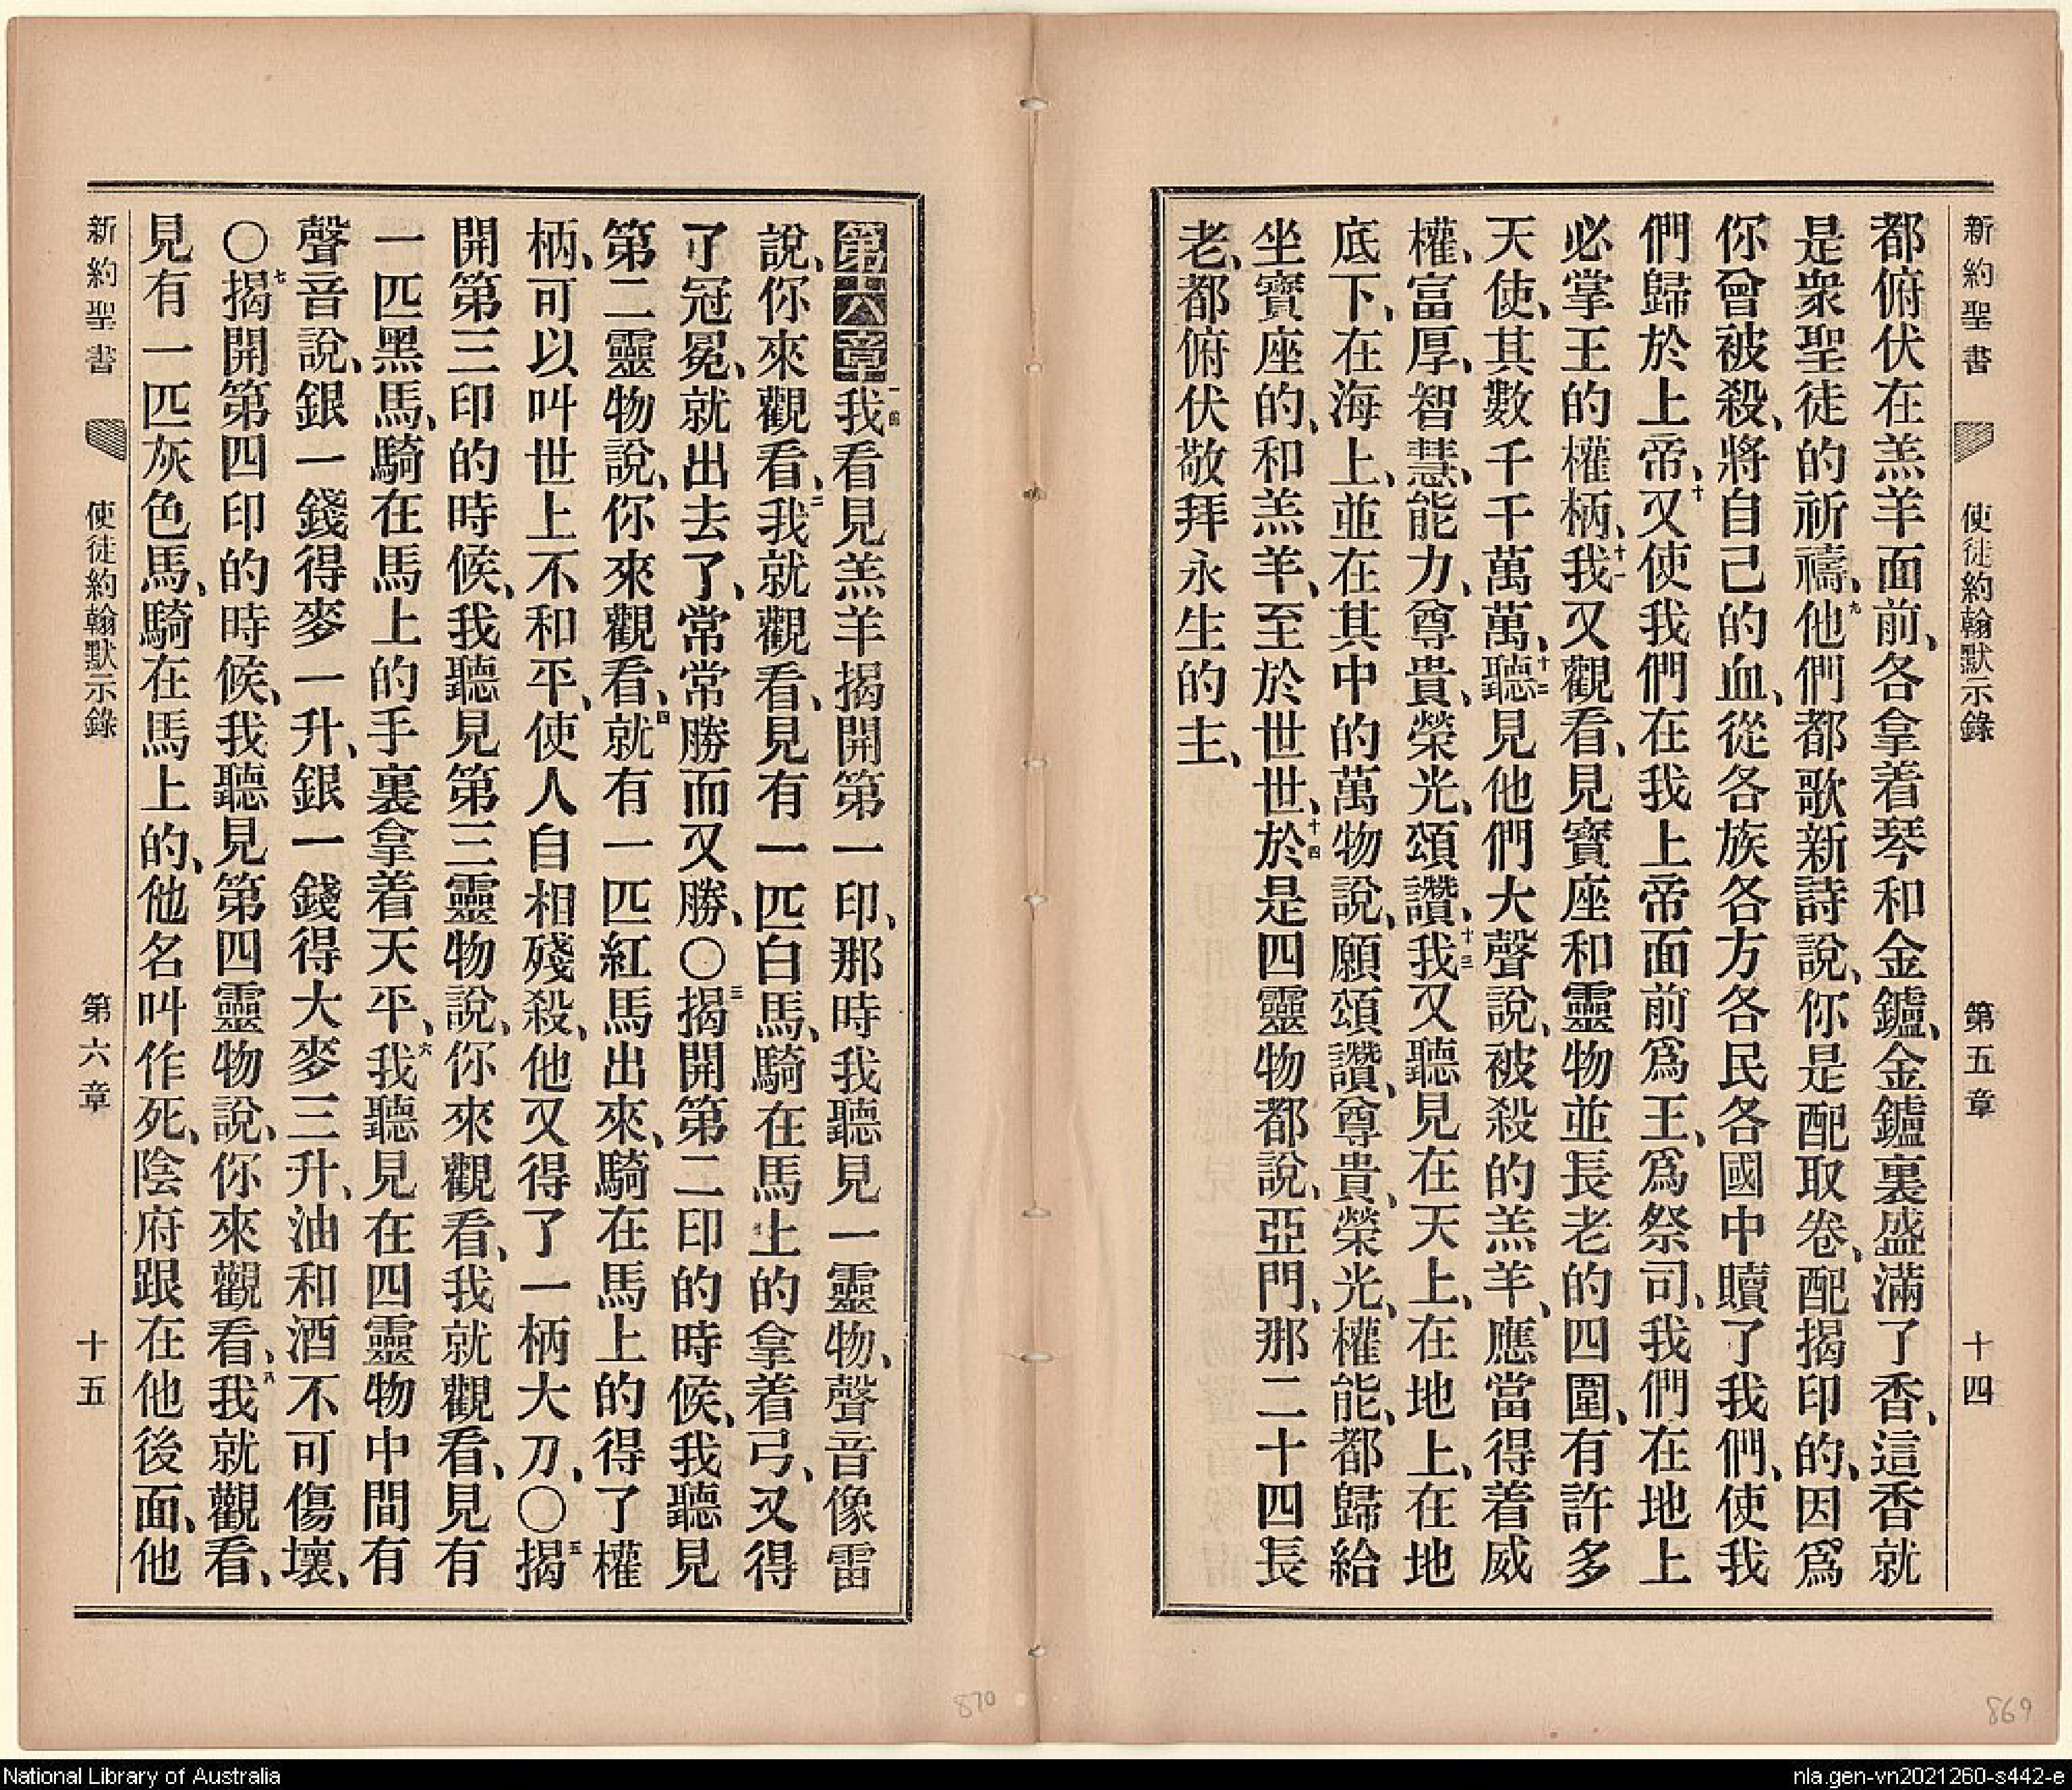 新約聖書 使徒約翰默示錄 第五章 十四
都俯伏在羔羊面前、各拿着琴和金鑪、金鑪裏盛滿了香、這香就
是衆聖徒的祈禱、九他們都歌新詩說、你是配取卷、配揭印的、因爲
你曾被殺、將自己的血、從各族各方各民各國中贖了我們、使我
們歸於上帝、十又使我們在我上帝面前爲王、爲祭司、我們在地上
必掌王的權柄、十一我又觀看、見寶座和靈物並長老的四圍、有許多
天使、其數千千萬萬、十二聽見他們大聲說、被殺的羔羊、應當得着威
權、富厚、智慧、能力、尊貴、榮光、頌讚、十三我又聽見在天上、在地上、在地
底下、在海上、並在其中的萬物說、願頌讚、尊貴、榮光、權能、都歸給
坐寶座的、和羔羊、至於世世、十四於是四靈物都說、亞門、那二十四長
老、都俯伏敬拜永生的主、
第六章一我看見羔羊揭開第一印、那時我聽見一靈物、聲音像雷
說、你來觀看、二我就觀看、見有一匹白馬、騎在馬上的拿着弓、又得
了冠冕、就出去了、常常勝而又勝、〇三揭開第二印的時候、我聽見
第二靈物說、你來觀看、四就有一匹紅馬出來、騎在馬上的得了權
柄、可以叫世上不和平、使人自相殘殺、他又得了一柄大刀、〇五揭
開第三印的時候、我聽見第三靈物說、你來觀看、我就觀看、見有
一匹黑馬、騎在馬上的手裏拿着天平、六我聽見在四靈物中間有
聲音說、銀一錢得麥一升、銀一錢得大麥三升、油和酒不可傷壞、
〇七揭開第四印的時候、我聽見第四靈物說、你來觀看、八我就觀看、
見有一匹灰色馬、騎在馬上的、他名叫作死、陰府跟在他後面、他
新約聖書 使徒約翰默示錄 第六章 十五
870
869
National Library of Australia
nla.gen-vn2021260-s442-e